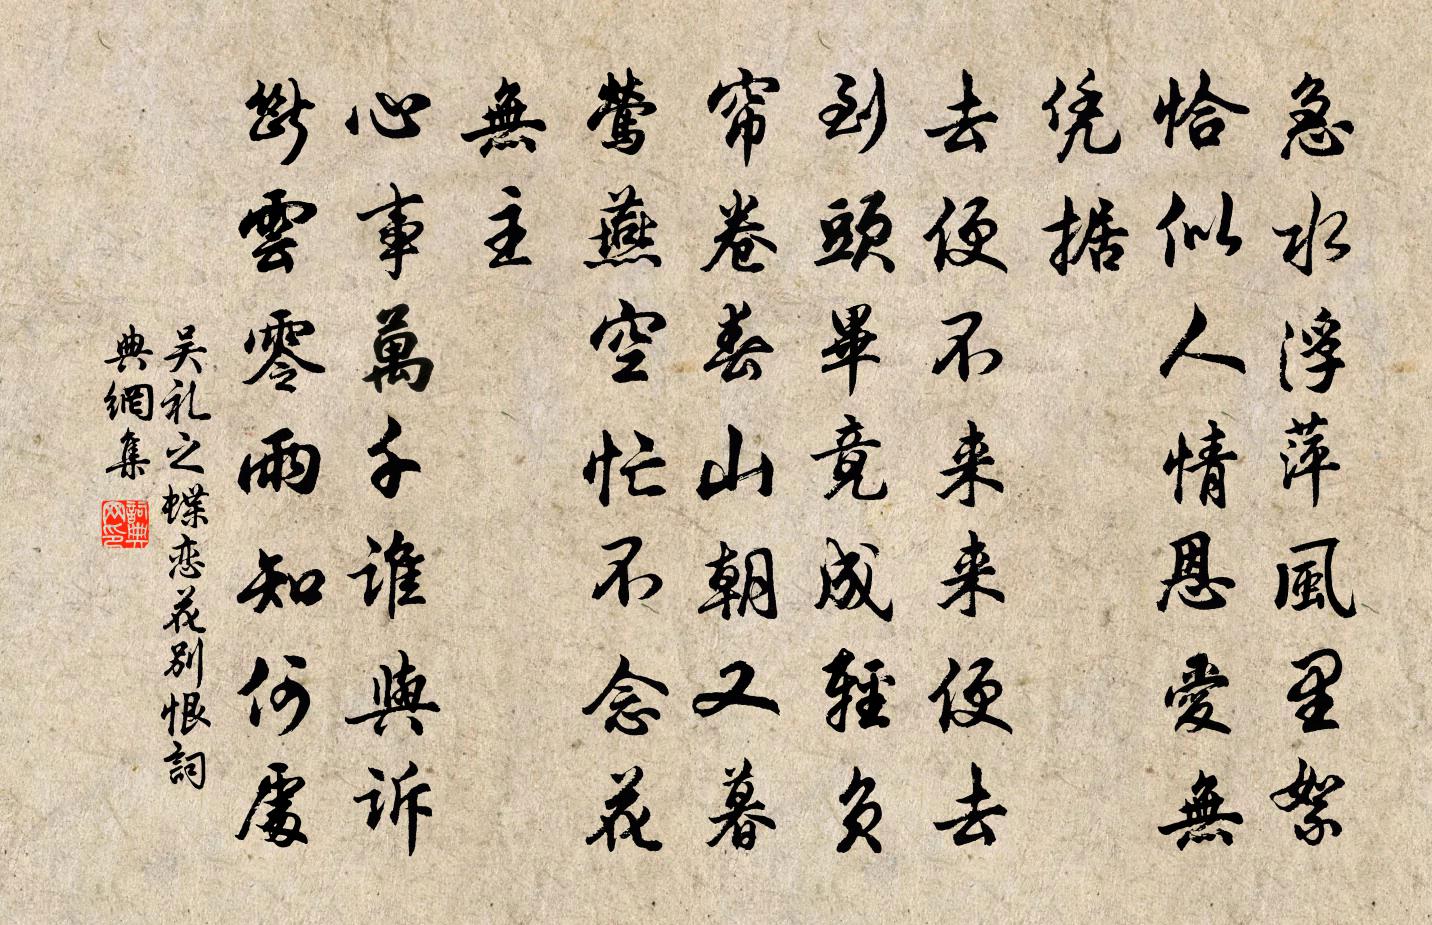 急水浮萍風里絮
恰似人情恩愛無
凭据
去便不来来便去
到頭畢竟成輕負
帘卷春山朝又暮
鶯燕空忙不念花
無主
心事萬千誰與訴
斷雲零雨知何處
吴礼之蝶恋花别恨詞
典網集
詞典网印